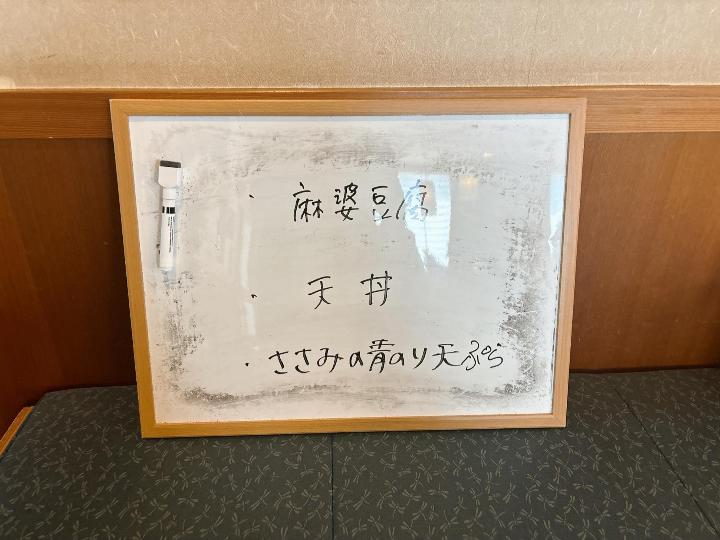 ・麻婆豆腐
・天丼
・ささみの青のり天ぷら